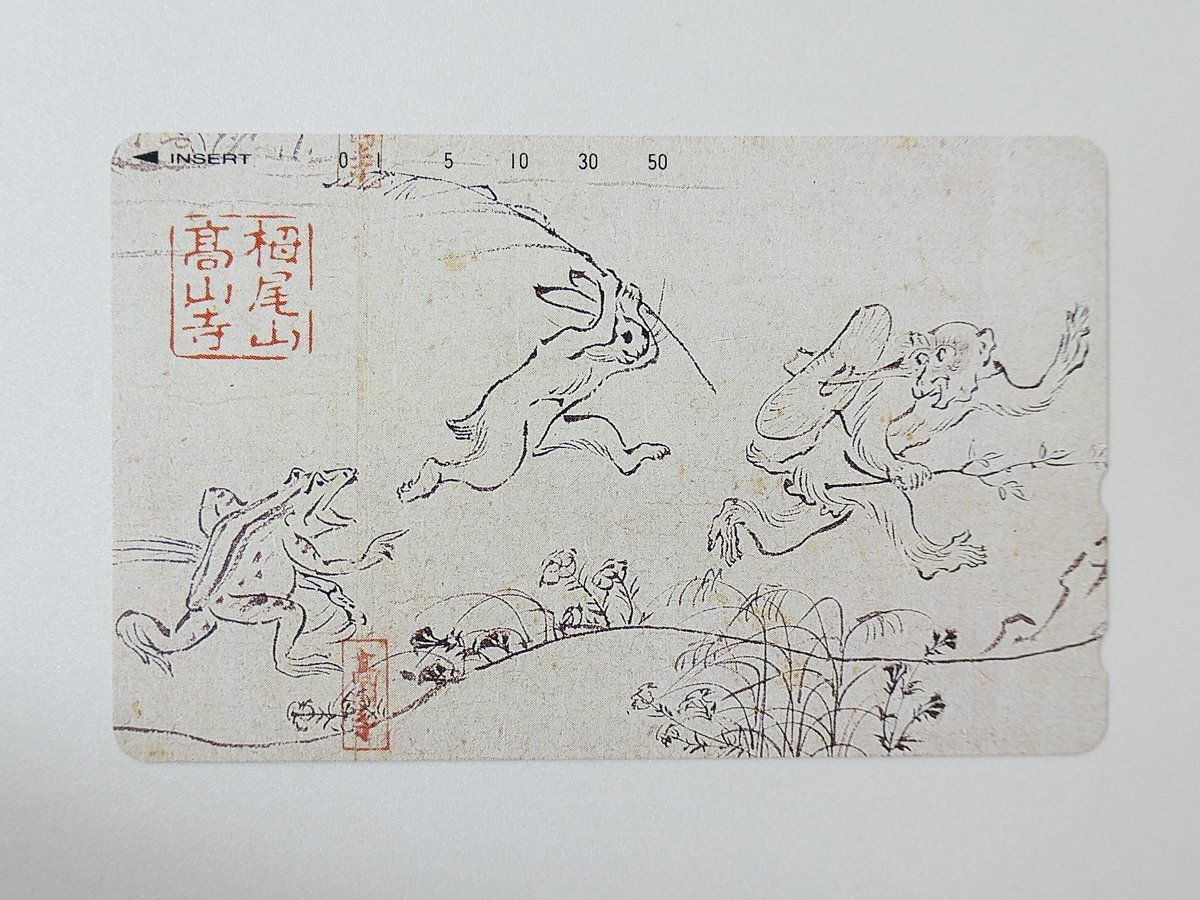 ◀ INSERT 0 1 5 10 30 50
栂尾山
髙山寺